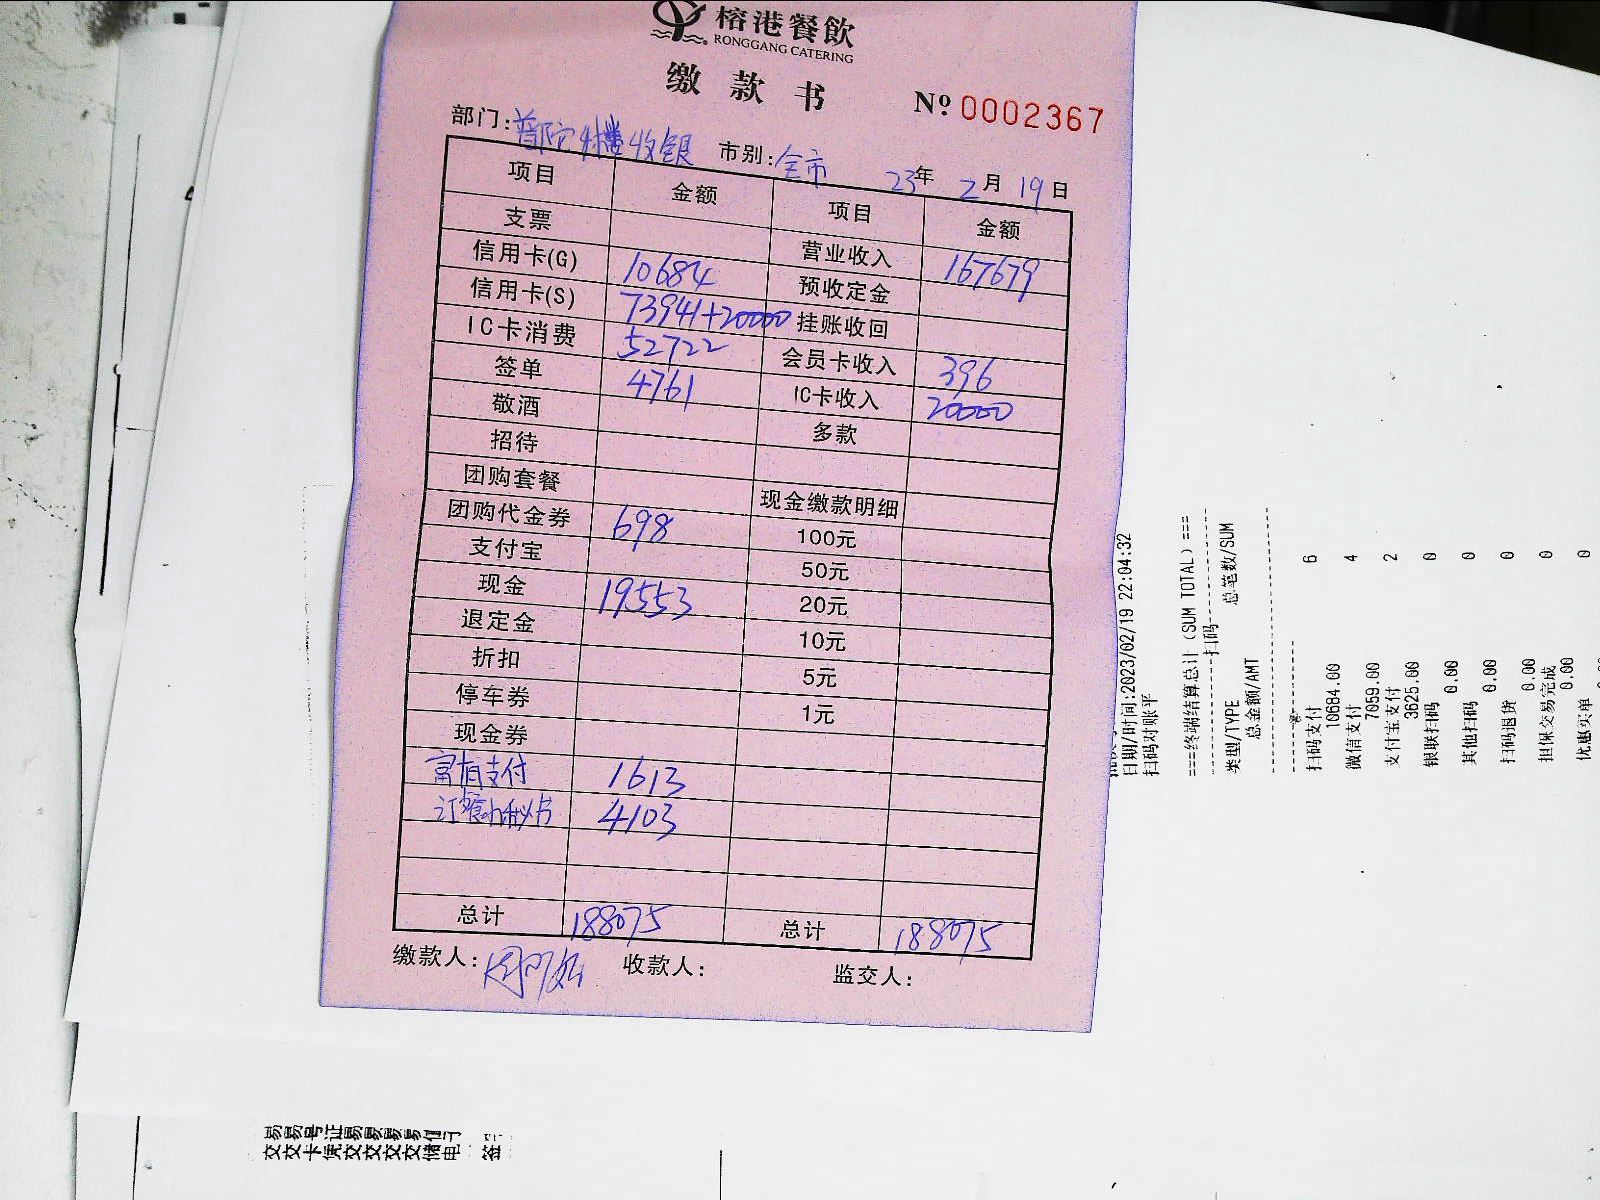 榕港餐飲
RONGGANG CATERING
缴款书 Nº 0002367
部门: 楼收银 市别: 全市 23年 2月 19日
项目 金额 项目 金额
支票 营业收入 167679
信用卡(G) 10684 预收定金
信用卡(S) 73941+20000 挂账收回
IC卡消费 52722 会员卡收入 396
签单 4761 IC卡收入 20000
敬酒 多款
招待
团购套餐 现金缴款明细
团购代金券 698 100元
支付宝 50元
现金 19553 20元
退定金 10元
折扣 5元
停车券 1元
现金券
支付 1613
订餐小秘书 4103
总计 188075 总计 188075
缴款人: 收款人: 监交人:
日期/时间:2023/02/19 22:04:32
扫码对账平
===终端结算总计 (SUM TOTAL) ===
扫码
类型/TYPE 总笔数/SUM
总金额/AMT
扫码支付 6
10684.00
微信支付 4
7059.00
支付宝支付 2
3625.00
银联扫码 0
0.00
其他扫码 0
0.00
扫码退货 0
0.00
担保交易完成 0
0.00
优惠买单 0